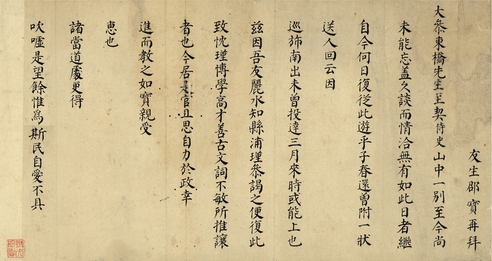 友生邵寶再拜
大叅東橋先生至契侍史山中一別至今尚
未能忘蓋久談而情洽無有如此日者繼
自今何日復從此遊乎子春還曾附一狀
送人回云因
巡斾南出未曾投達三月來時或能上也
茲因吾友麗水知縣浦瑾叅謁之便復此
致忱瑾博學高才善古文詞不敏所推讓
者也今居是官且思自力於政幸
進而教之如寶親受
惠也
諸當道處更得
吹噓是望餘惟爲斯民自愛不具